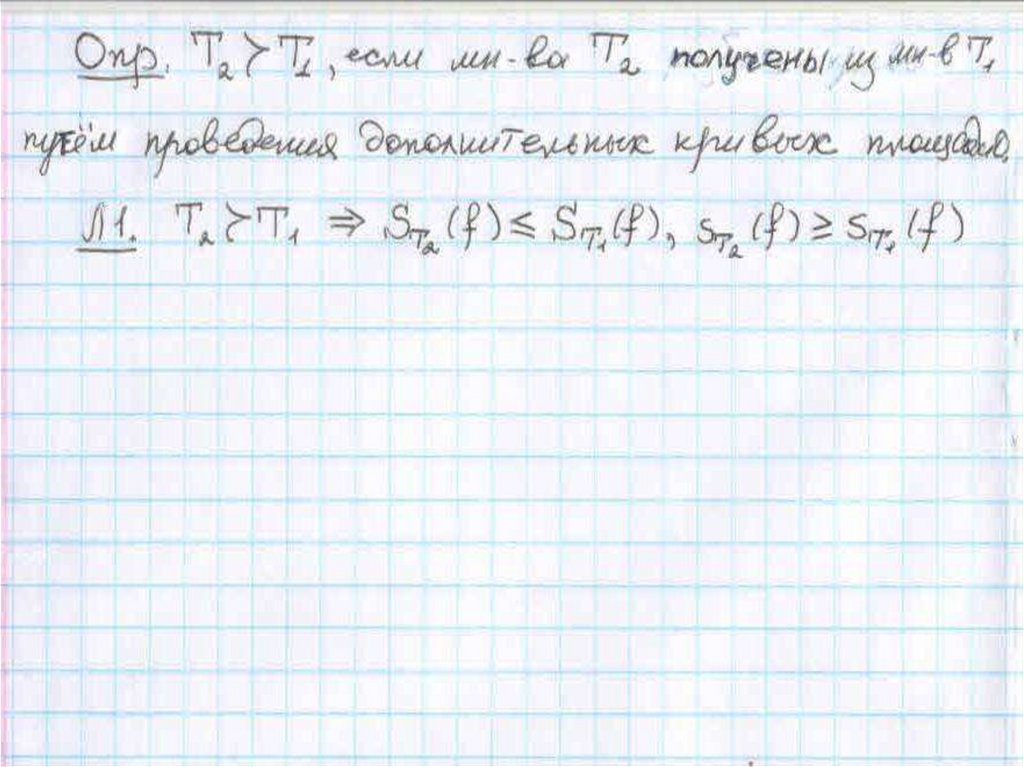 Опр. T₂≻T₁, если мн-ва T₂ получены из мн-в T₁
путём проведения дополнительных кривых площади
Л1. T₂≻T₁ ⇒ S_T₂(f) ≤ S_T₁(f), s_T₂(f) ≥ s_T₁(f)